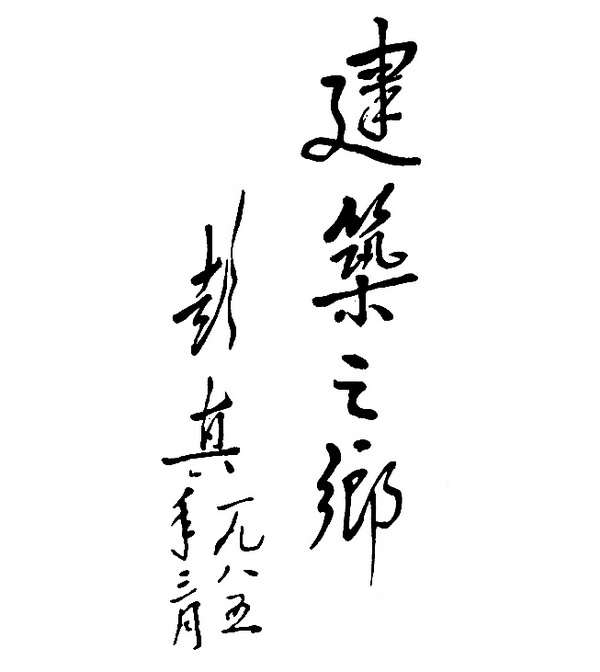 建築之鄉
彭真
一九八五
年三月